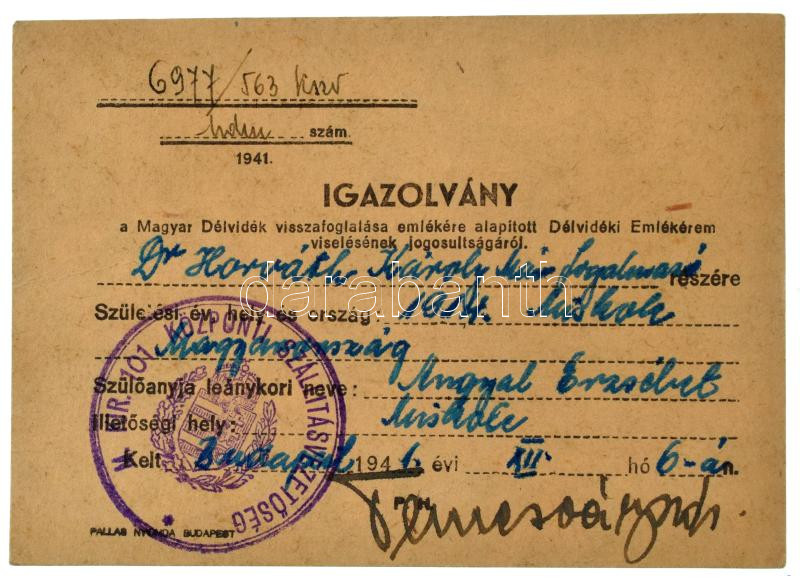 6977/563 kszv
szám.
1941.
IGAZOLVÁNY
a Magyar Délvidék visszafoglalása emlékére alapitott Délvidéki Emlékérem
viselésének jogosultságáról.
Dr Horváth Károly részére
Születési év, hely és ország: Miskolc
Magyarország
Szülőanyja leánykori neve: Angyal Erzsébet
Illetőségi hely: Miskolc
Kelt Budapest 1941. évi XII. hó 6-án.
P. H.
M. KIR. 101. KÖZPONTI SZÁLLITÁSVEZETŐSÉG
PALLAS NYOMDA BUDAPEST
darabanth